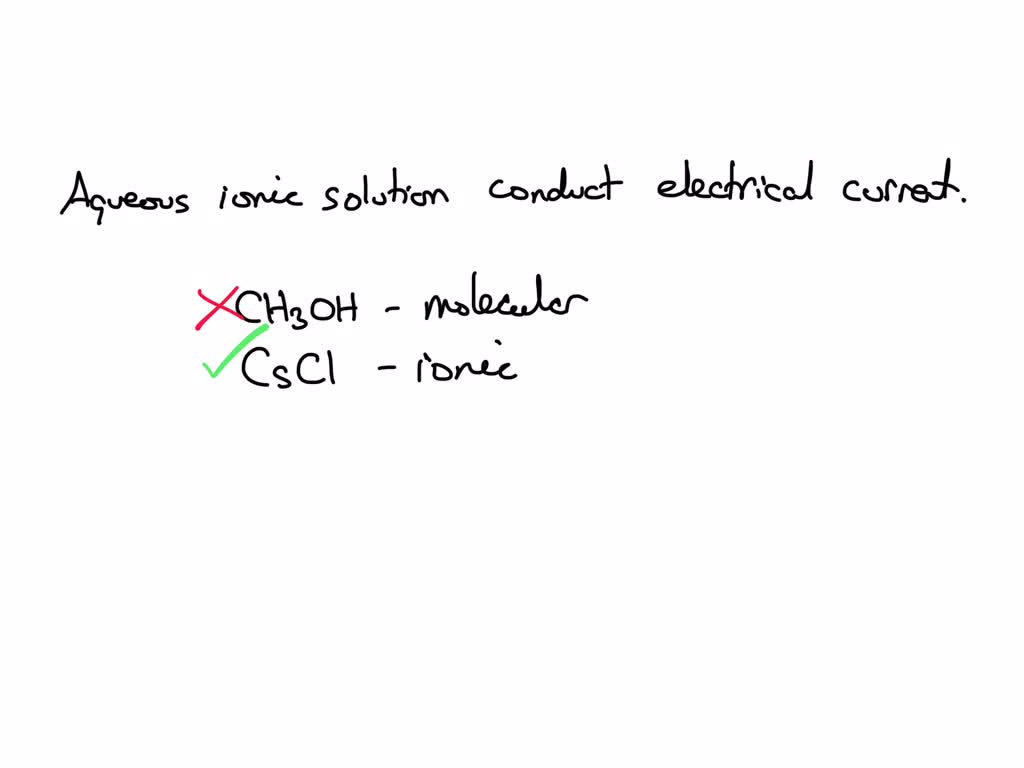 Aqueous ionic solution conduct electrical current.
CH3OH - molecular
CsCl - ionic